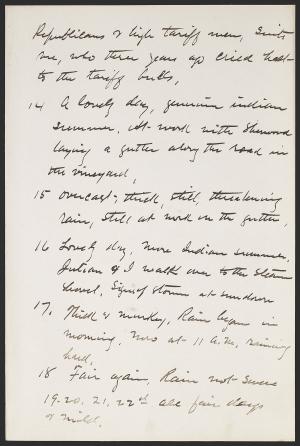 Republicans & high tariff men, Since
me, who three years ago cried
to the tariff bills,
14 A lovely day, genuine indian
summer. At work with Sherwood
laying a gutter along the road in
the vineyard,
15 overcast, thick, still, threatening
rain, still at work on the gutter,
16 Lovely day, more Indian summer,
Julian & I walk over to the steam
shovel. Signs of storm at sundown
17. Thick & murky, Rain began in
morning. Now at 11 a.m. raining
hard.
18 Fair again, Rain not severe
19-20. 21, 22nd all fair days
& mild.